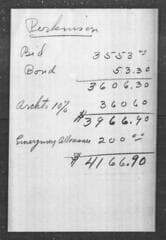 Perkinson
Bid 3553.00
Bond 53.30
3606.30
Archt. 10% 360.60
$3966.90
Emergency Allowance 200.00
$4166.90